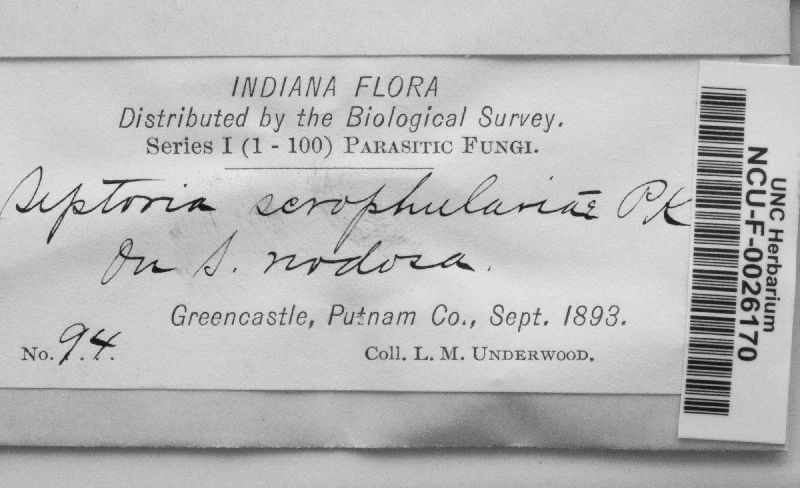 INDIANA FLORA
Distributed by the Biological Survey.
Series I (1 - 100) PARASITIC FUNGI.
Septoria scrophulariae PK
On S. nodosa.
Greencastle, Putnam Co., Sept. 1893.
No. 94.
Coll. L. M. UNDERWOOD.
UNC Herbarium
NCU-F-0026170